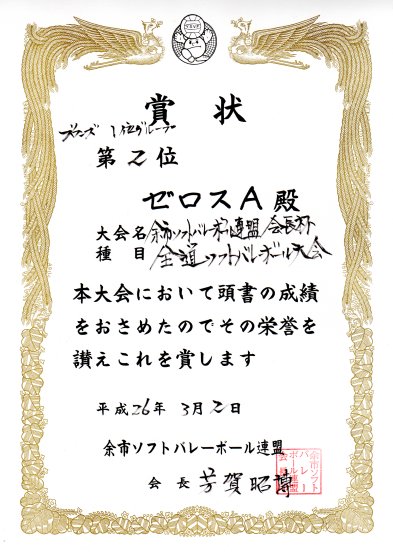 賞状
ズァンズ 1位グループ
第2位
ゼロスA殿
大会名 余市ソフトバレーボール連盟会長杯
種目 全道ソフトバレーボール大会
本大会において頭書の成績
をおさめたのでその栄誉を
讃えこれを賞します
平成26年3月2日
余市ソフトバレーボール連盟
会長 芳賀昭博
余市ソフト
バレー
ボール連盟